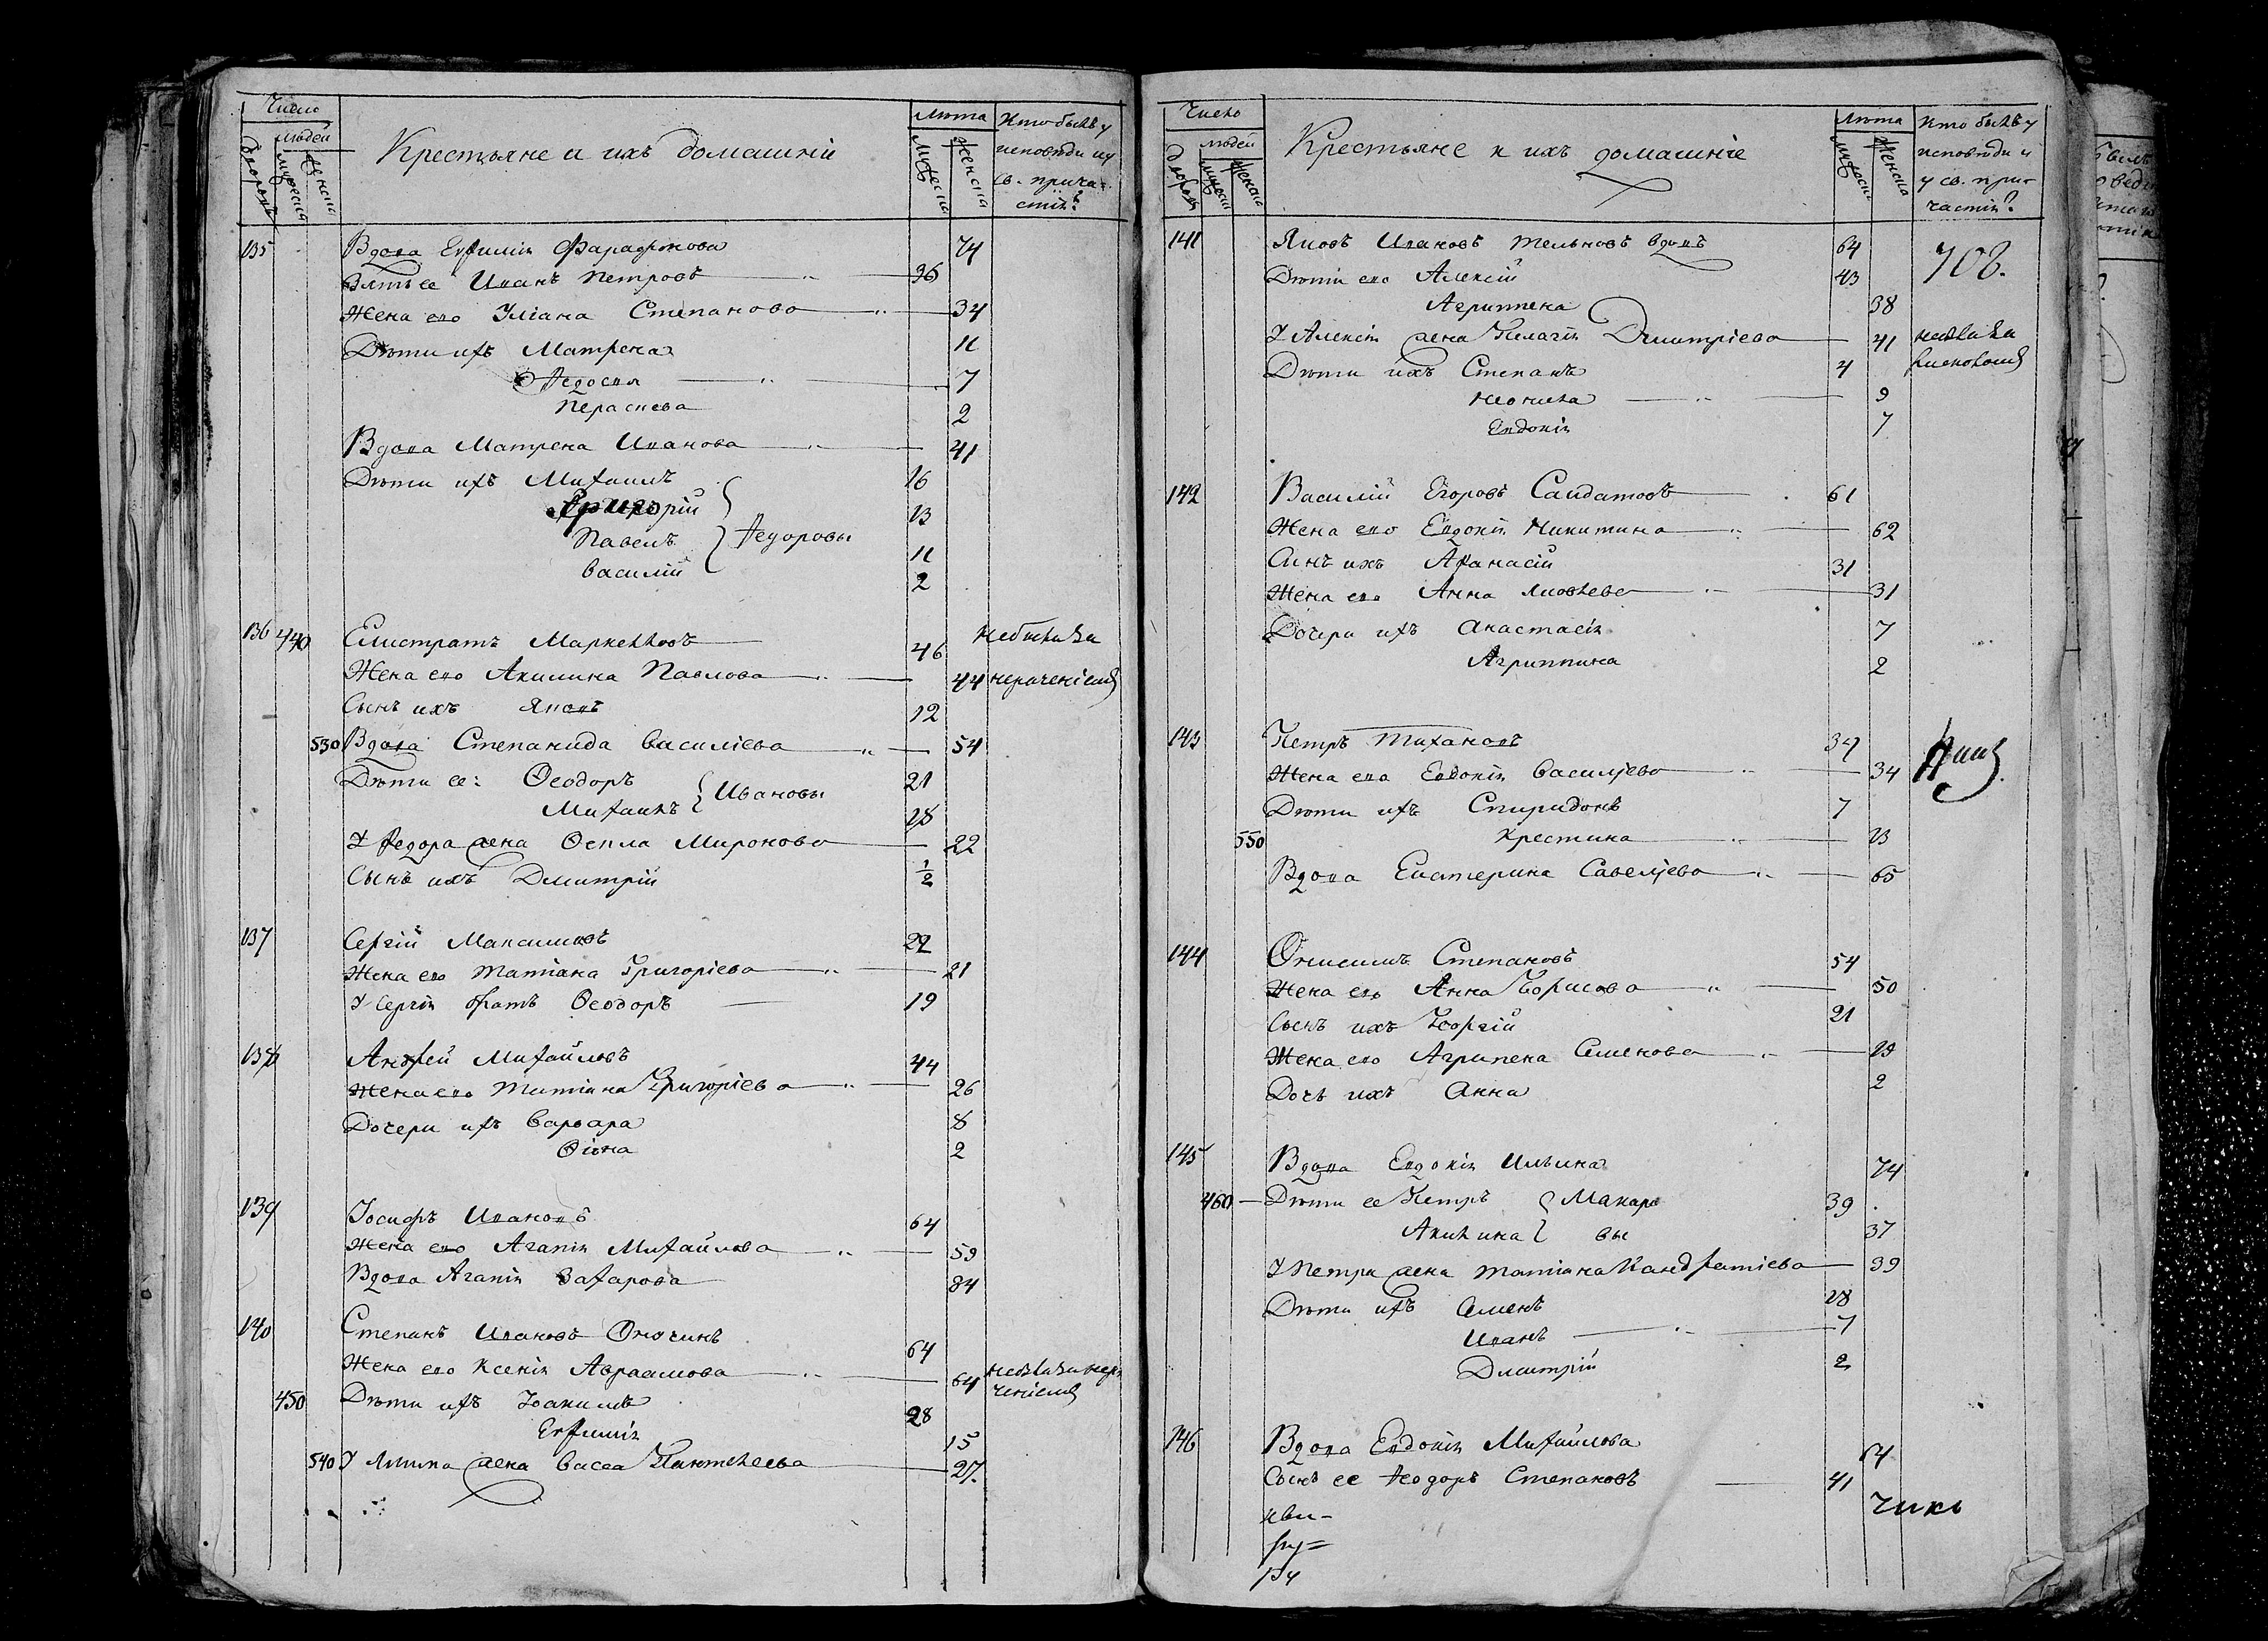 Число
людей
дворовъ
мужеска
женска
Крестьяне и ихъ домашнии
Лѣта
мужеска
женска
Кто былъ у
исповѣди и у
св. прича-
стія?
135 Вдова Евфимія Фарафонова 74
Зять ее Иванъ Петровъ 36
Жена его Уліана Степанова 34
Дѣти ихъ Матрена 11
Федосья 7
Пераскева 2
Вдова Матрена Иванова 41
Дѣти ихъ Михаилъ 16
Григорій 13
Павелъ Федоровы 11
Василій 2
136 440 Елистратъ Маркелловъ 46 небыли за
Жена его Акилина Павлова 44 нераченіемъ
Сынъ ихъ Яковъ 12
530 Вдова Степанида Василіева 54
Дѣти ее: Ѳеодоръ 21
Михаилъ Ивановы 18
У Федора жена Ѳекла Миронова 22
Сынъ ихъ Дмитрій ½
137 Сергій Максимовъ 22
Жена его Татіана Григоріева 21
У Сергія братъ Ѳеодоръ 19
138 Андрей Михайловъ 44
Жена его Татіана Григоріева 26
Дочери ихъ Варвара 8
Ѳіона 2
139 Іосифъ Ивановъ 64
Жена его Агапія Михайлова 59
Вдова Агапія Захарова 84
140 Степанъ Ивановъ Оночинъ 64
Жена его Ксенія Авраамова 64 небыли за нера
ченіемъ
450 Дѣти ихъ Іоакимъ 28
Евфимія 15
540 У Акима жена Васса Пантелеева 27
Число
людей
дворовъ
мужеска
женска
Крестьяне и ихъ домашніе
Лѣта
мужеска
женска
Кто былъ у
исповѣди и
у св. при-
частія?
141 Яковъ Ивановъ Мельновъ вдовъ 64 708.
Дѣти его Алексій 43
Агриппена 38
У Алексія жена Пелагія Дмитріева 41 небыли за
Дѣти ихъ Степанъ 4
Неонила 9
Евдокія 7
142 Василій Егоровъ Салдатовъ 61
Жена его Евдокія Никитина 62
Сынъ ихъ Афанасій 31
Жена его Анна Яковлева 31
Дочери ихъ Анастасія 7
Агриппина 2
143 Петръ Тихановъ 37
Жена его Евдокія Василіева 34
Дѣти ихъ Спиридонъ 7
550 Крестина 13
Вдова Екатерина Савеліева 65
144 Онисимъ Степановъ 54
Жена его Анна Борисова 50
Сынъ ихъ Георгій 21
Жена его Агрипена Семенова 19
Дочь ихъ Анна 2
145 Вдова Евдокія Ильина 74
460 Дѣти ее Петръ Макаро 39
Акилина вы 37
У Петра жена Татіана Кандратіева 39
Дѣти ихъ Семенъ 18
Иванъ 7
Дмитрій 2
146 Вдова Евдокія Михайлова 64
Сынъ ее Феодоръ Степановъ 41